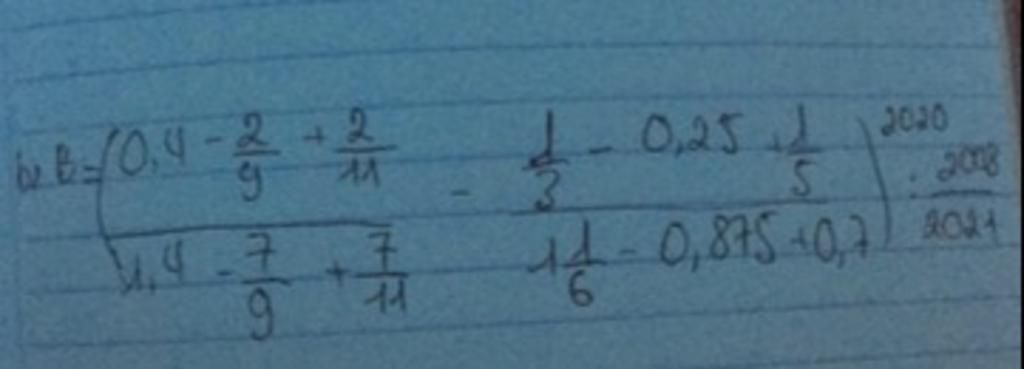 b, B = ( (0,4 - 2/9 + 2/11) / (1,4 - 7/9 + 7/11) - (1/3 - 0,25 + 1/5) / (1 1/6 - 0,875 + 0,7) )^2020 : 2008/2021